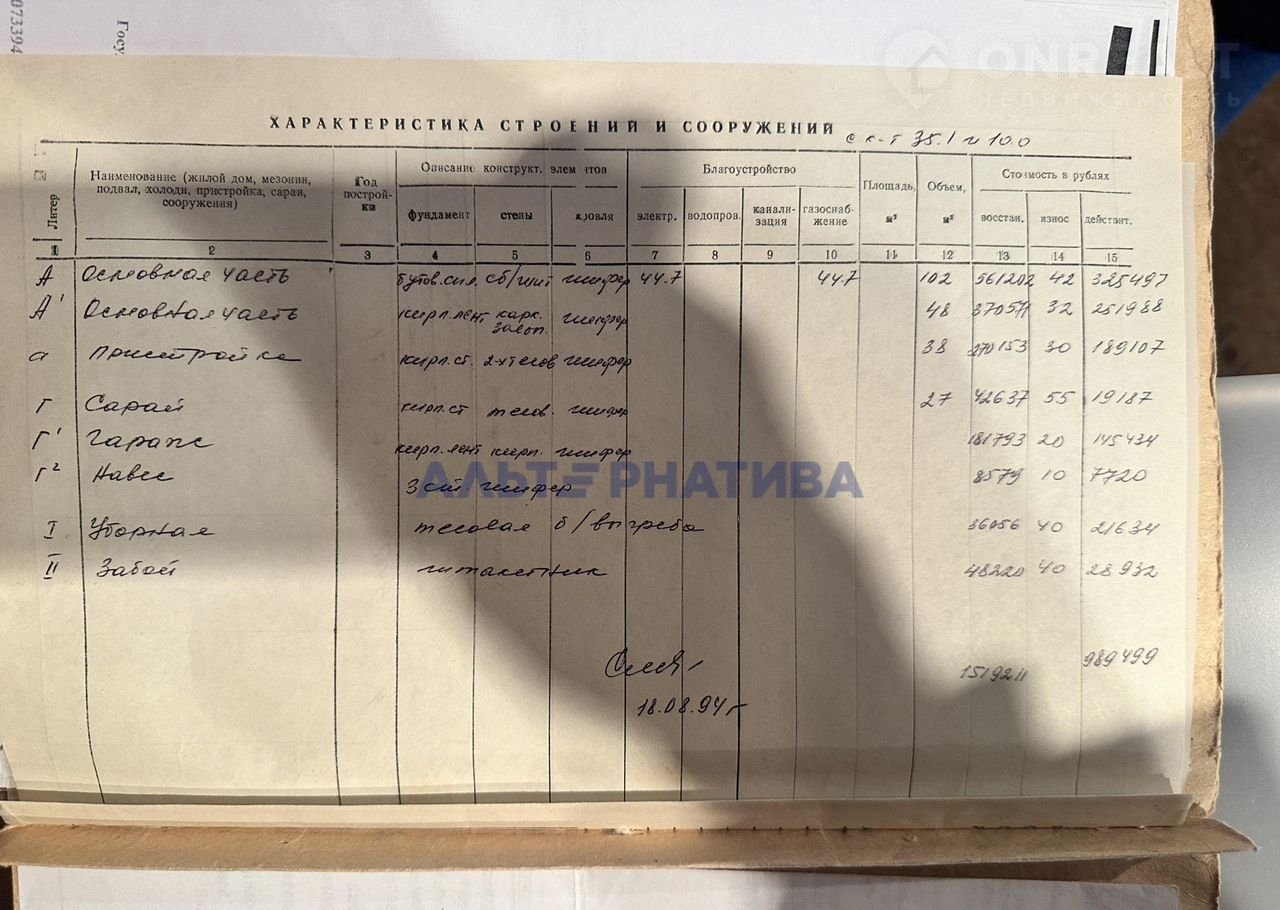 073394
Госу
ONREALT
НЕДВИЖИМОСТЬ
ХАРАКТЕРИСТИКА СТРОЕНИЙ И СООРУЖЕНИЙ
с к-т 35.1 и 10.0
Литер
Наименование (жилой дом, мезонин, подвал, холодн, пристройка, сараи, сооружения)
Год построй-ки
Описание конструкт. элементов
Благоустройство
Площадь, м²
Объем, м³
Стоимость в рублях
фундамент стены кровля электр. водопров. канали-зация газоснаб-жение восстан. износ действит.
1 2 3 4 5 6 7 8 9 10 11 12 13 14 15
А Основная часть сб/щит шифер 44.7 44.7 102 561202 42 325497
А¹ Основная часть кирп. лент карк. засып. шифер 48 37057 32 251988
а Пристройка кирп. ст. 2-х тесов шифер 38 270153 30 189107
Г Сарай кирп. ст тесов. шифер 27 42637 55 19187
Г¹ Гараж кирп. лент кирп. шифер 181793 20 145434
Г² Навес 3 ст. шифер 8579 10 7720
АЛЬТЕРНАТИВА
I Уборная тесовая б/выгреба 36056 40 21634
II Забой штакетник 48220 40 28932
1519211 989499
18.08.94г